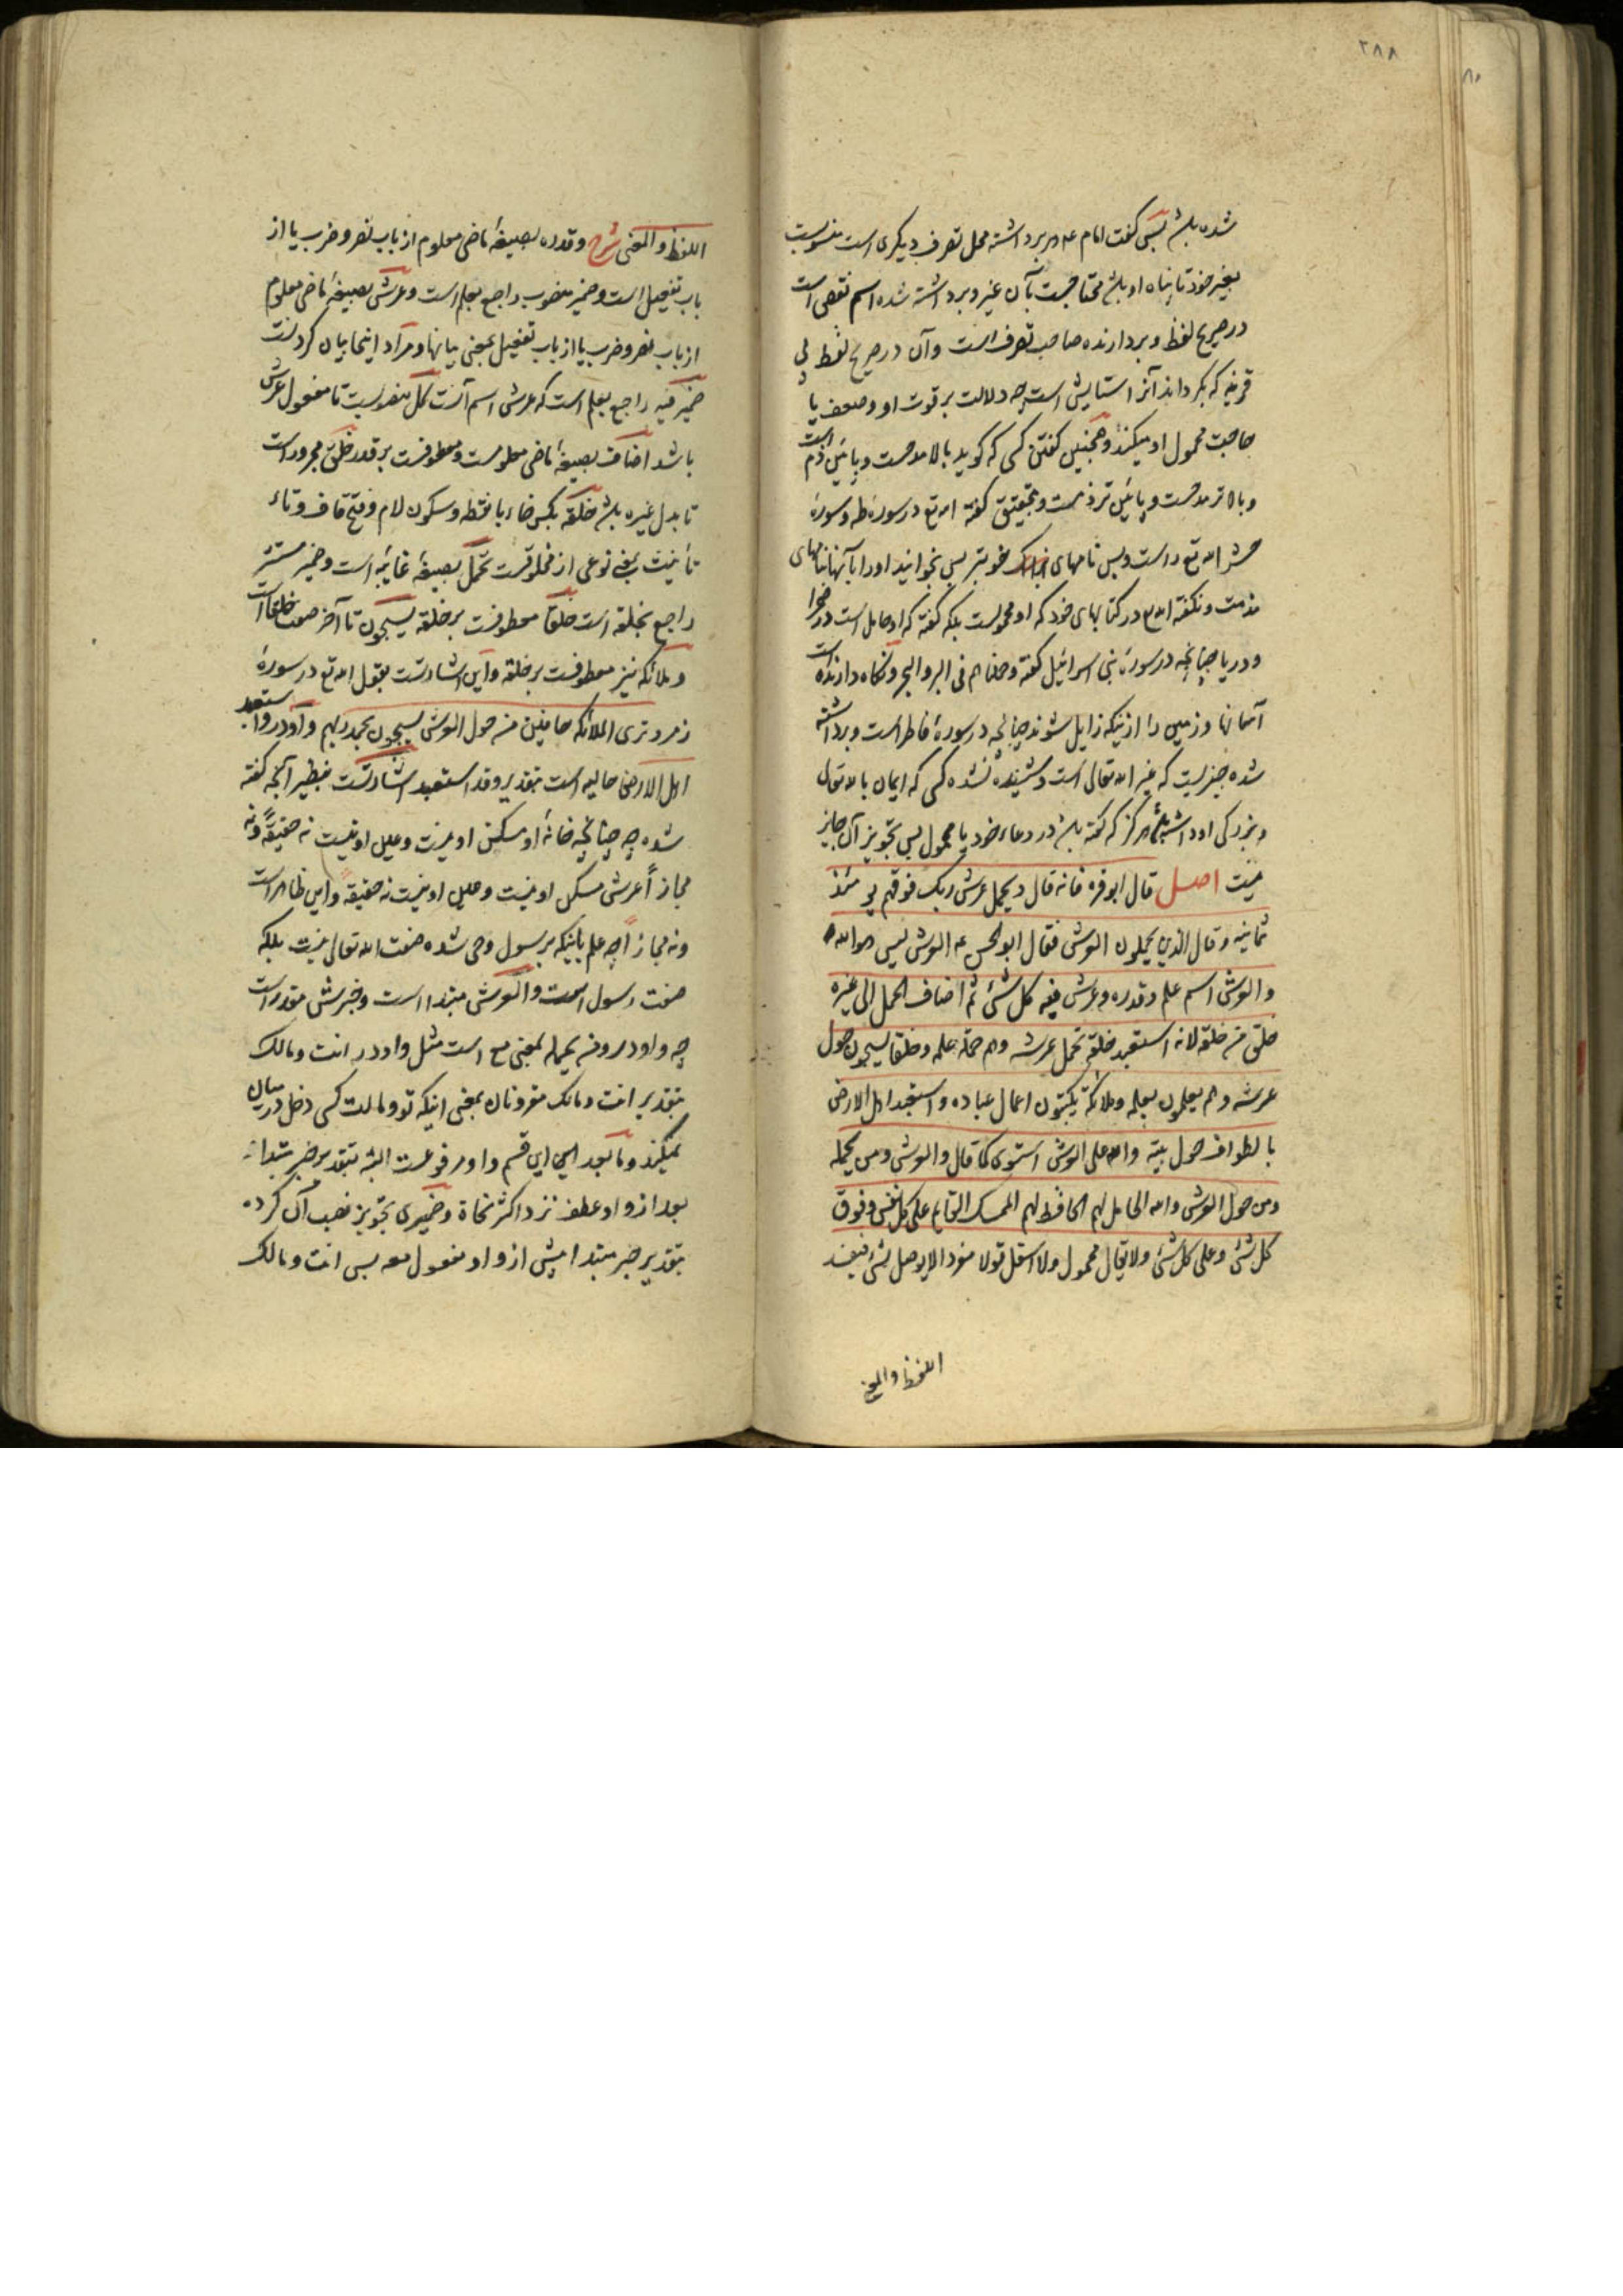 ٢٨٨
شده باشد پس گفت امام ع هر برداشته محل تصرف دیگری است منسوبست
بغیر خود تا پناه او باشد محتاجست بآن غیر و برداشته شده اسم نقص است
در صریح لفظ و بردارنده صاحب تصرف است و آن در صریح لفظ بی
قرینه که بگرداند آنرا ستایش است چه دلالت بر قوت او و ضعف یا
حاجت محمول او میکند و همچنین گفتن کسی که گوید بالا مدحست و پائین ذم است
و بالاتر مدحست و پائین تر ذمست و بتحقیق گفته الله تع در سورۀ طه و سورۀ
حشر الله تع راست و بس نامهای خوبتر پس بخوانید او را بآنها نامهای
مذمت و نگفته الله تع در کتابهای خود که او محمولست بلکه گفته که او حامل است در صحرا
و دریا چنانچه در سورۀ بنی اسرائیل گفته وحملناهم فی البر والبحر و نگاه دارنده است
آسمانها و زمین را از اینکه زایل شوند چنانچه در سورۀ فاطر است و برداشته
شده چیزیست که غیر الله تعالی است و شنیده نشده کسی که ایمان بالله تعالی
و بزرگی او داشته باشد هرگز که گفته باشد در دعاء خود یا محمول پس تجویز آن جایز
نیست اصل قال ابو قره فانه قال ویحمل عرش ربک فوقهم یومئذ
ثمانیه وقال الذین یحملون العرش فقال ابو الحسن ع العرش لیس هو الله
والعرش اسم علم وقدره وعرش فیه کل شئ ثم اضاف الحمل الی غیره
خلق من خلقه لانه استعبد خلقه بحمل عرشه وهم حملة علمه وخلقا یسبحون حول
عرشه وهم یعملون بعلمه وملائکة یکتبون اعمال عباده واستعبد اهل الارض
بالطواف حول بیته والله علی العرش استوی کما قال والعرش ومن یحمله
ومن حول العرش والله الحامل لهم الحافظ لهم الممسک القایم علی کل نفس وفوق
کل شئ وعلی کل شئ ولا یقال محمول ولا اسفل قولا مفردا لا یوصل بشئ فیفسد
اللفظ والمعنی
اللفظ والمعنی شرح وقدره بصیغۀ ماضی معلوم از باب نصر و ضرب یا از
باب تفعیل است و ضمیر منصوب راجع بعلم است وعرش بصیغۀ ماضی معلوم
از باب نصر و ضرب یا از باب تفعیل بمعنی بنا نهاد و مراد اینجا بیان کردنست
ضمیر فیه راجع بعلم است که عرش اسم آنست کل منصوبست تا مفعول عرش
باشد اضاف بصیغۀ ماضی معلومست و معطوفست بر قدر خلق مجرور است
تا بدل غیره باشد خلقه بکسر خاء با نقطه و سکون لام و فتح قاف و تاء
تأنیث یعنی نوعی از مخلوقست تحمل بصیغۀ غائبه است و ضمیر مستتر
راجع بخلقه است خلقا معطوفست بر خلقه یسبحون تا آخر صفت خلقا است
و ملائکه نیز معطوفست بر خلقه و این اشارتست بقول الله تع در سورۀ
زمر وتری الملائکه حافین من حول العرش یسبحون بحمد ربهم و واو در واستعبد
اهل الارض حالیه است بتقدیر وقد استعبد اشارتست بنظیر آنچه گفته
شده چه چنانچه خانۀ او مسکن او نیست و محل او نیست نه حقیقةً و نه
مجازاً عرش مسکن او نیست و محل او نیست نه حقیقةً و این ظاهر است
و نه مجازاً چه علم باینکه بر رسول وحی شده صفت الله تعالی نیست بلکه
صفت رسول است والعرش مبتدا است و خبرش مقدر است
چه واو در ومن یحمله بمعنی مع است مثل واو در انت ومالک
بتقدیر انت ومالک مقرونان بمعنی اینکه تو و مالت کسی دخل در میان
نمیکند و مابعد این قسم واو مرفوعست البته بتقدیر خبر مبتدا
بعد از واو عطف نزد اکثر نحاة و ضمیری تجویز نصب آن کرده
بتقدیر خبر مبتدا پیش از واو مفعول معه پس انت ومالک